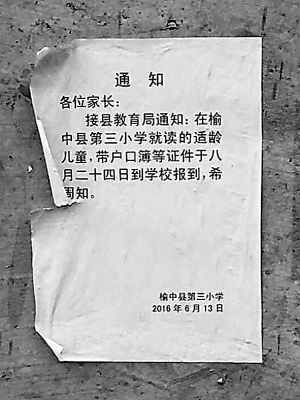 通知
各位家长：
接县教育局通知：在榆
中县第三小学就读的适龄
儿童，带户口簿等证件于八
月二十四日到学校报到，希
周知。
榆中县第三小学
2016年6月13日